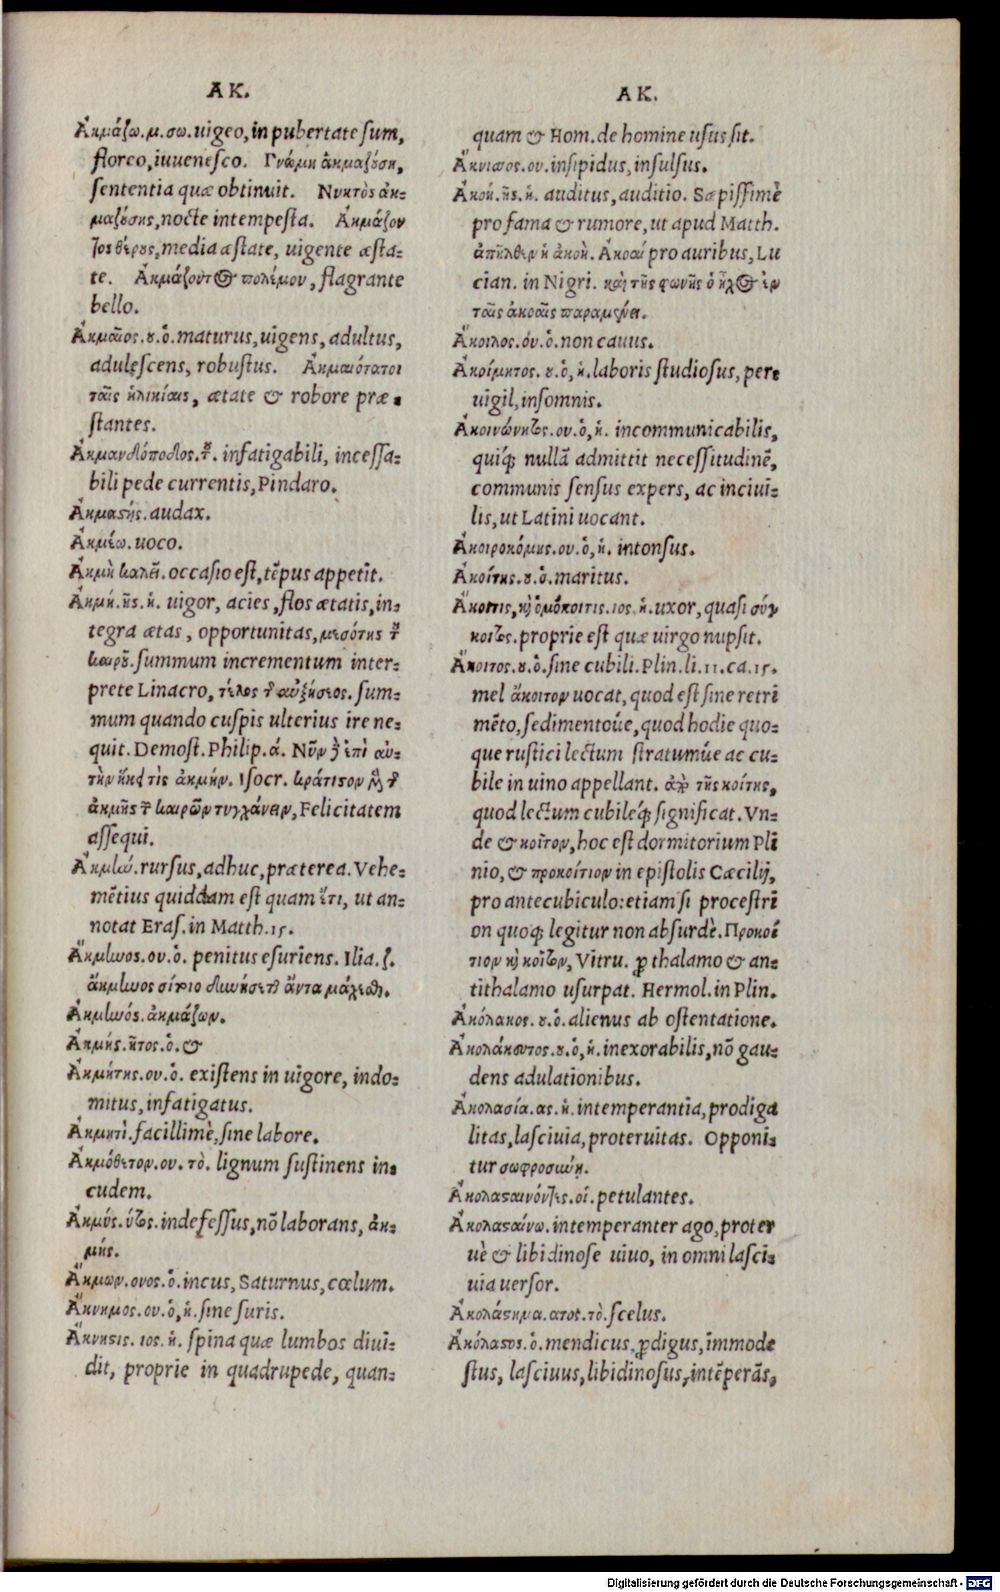 AK.
Ἀκμάζω.μ.σω.uigeo,in pubertate sum,
floreo,iuuenesco. Γνώμη ἀκμαζούση,
sententia quæ obtinuit. Νυκτὸς ἀκ-
μαζούσης,nocte intempesta. Ἀκμάζον
τος θέρους,media æstate, uigente æsta-
te. Ἀκμάζοντος πολέμου, flagrante
bello.
Ἀκμαῖος.ου.ὁ.maturus,uigens, adultus,
adulescens, robustus. Ἀκμαιότατοι
ταῖς ἡλικίαις, ætate & robore præ-
stantes.
Ἀκμανδόποδος.τοῦ. infatigabili, incessa-
bili pede currentis,Pindaro.
Ἀκμαστής.audax.
Ἀκμέω.uoco.
Ἀκμὴ καλεῖ.occasio est,tẽpus appetit.
Ἀκμή.ῆς.ἡ. uigor, acies,flos ætatis,in-
tegra ætas, opportunitas,μεσότης τοῦ
καιροῦ.summum incrementum inter-
prete Linacro, τέλος τοῦ αὐξήσιος. sum-
mum quando cuspis ulterius ire ne-
quit. Demost. Philip. ά. Νῦν γὰρ ἐπὶ αὐ-
τὴν ἥκει τὶς ἀκμήν. Isocr. κράτιστον
ἀκμῆς τῶν καιρῶν τυγχάνειν, Felicitatem
assequi.
Ἀκμὼ.rursus,adhuc,præterea.Vehe-
mẽtius quiddam est quam ἔτι, ut an-
notat Eras.in Matth.15.
Ἄκμηνος.ου.ὁ. penitus esuriens. Ilia.ζ.
ἄκμηνος σίτοιο δυνήσεται ἄντα μάχεσθαι.
Ἀκμηνός.ἀκμάζων.
Ἀκμής.ῆτος.ὁ.&
Ἀκμήτης.ου.ὁ. existens in uigore, indo-
mitus,infatigatus.
Ἀκμητὶ.facillimè,sine labore.
Ἀκμόθετον.ου.τὸ. lignum sustinens in-
cudem.
Ἀκμύς.ύτος.indefessus,nõ laborans, ἀκ-
μής.
Ἄκμων.ονος.ὁ.incus, Saturnus, cœlum.
Ἄκνημος.ου.ὁ,ἡ.sine suris.
Ἄκνησις.ιος.ἡ. spina quæ lumbos diui-
dit, proprie in quadrupede, quan-
AK.
quam & Hom.de homine usus sit.
Ἄκνισος.ου.insipidus,insulsus.
Ἀκοή.ῆς.ἡ. auditus, auditio. Sæpissimè
pro fama & rumore, ut apud Matth.
ἀπῆλθεν ἡ ἀκοὴ. Ἀκοαί pro auribus,Lu
cian. in Nigri. καὶ τῆς φωνῆς ὁ ἦχος ἐν
ταῖς ἀκοαῖς παραμένει.
Ἄκοιλος.όυ.ὁ.non cauus.
Ἀκοίμητος.ου.ὁ,ἡ.laboris studiosus,per-
uigil,insomnis.
Ἀκοινώνητος.ου.ὁ,ἡ. incommunicabilis,
quiq; nullã admittit necessitudinẽ,
communis sensus expers, ac inciui-
lis,ut Latini uocant.
Ἀκοιροκόμης.ου.ὁ,ἡ. intonsus.
Ἀκοίτης.ου.ὁ.maritus.
Ἄκοιτις,καὶ ὁμόκοιτις.ιος.ἡ.uxor,quasi σύγ
κοιτος.proprie est quæ uirgo nupsit.
Ἄκοιτος.ου.ὁ.sine cubili.Plin.li.11.ca.15.
mel ἄκοιτον uocat,quod est sine retri
mẽto,sedimentoúe,quod hodie quo-
que rustici lectum stratumúe ac cu-
bile in uino appellant. ἀπὸ τῆς κοίτης,
quod lectum cubileq́; significat. Vn-
de & κοῖτον, hoc est dormitorium Pli
nio, & προκοίτιον in epistolis Cæcilij,
pro antecubiculo:etiam si procestri
on quoq; legitur non absurdè. Προκοί
τιον καὶ κοῖτον, Vitru. ꝓ thalamo & an-
tithalamo usurpat. Hermol.in Plin.
Ἀκόλακος.ου.ὁ.alienus ab ostentatione.
Ἀκολάκευτος.ου.ὁ,ἡ.inexorabilis,nõ gau-
dens adulationibus.
Ἀκολασία.ας.ἡ.intemperantia,prodiga
litas,lasciuia,proteruitas. Opponi-
tur σωφροσύνη.
Ἀκολασαινόντες.οἱ.petulantes.
Ἀκολασαίνω.intemperanter ago,proter
uè & libidinose uiuo, in omni lasci-
uia uersor.
Ἀκολάστημα.ατος.τὸ.scelus.
Ἀκόλαστος.ὁ.mendicus,ꝓdigus,immode
stus, lasciuus,libidinosus,intẽperãs,
Digitalisierung gefördert durch die Deutsche Forschungsgemeinschaft - DFG